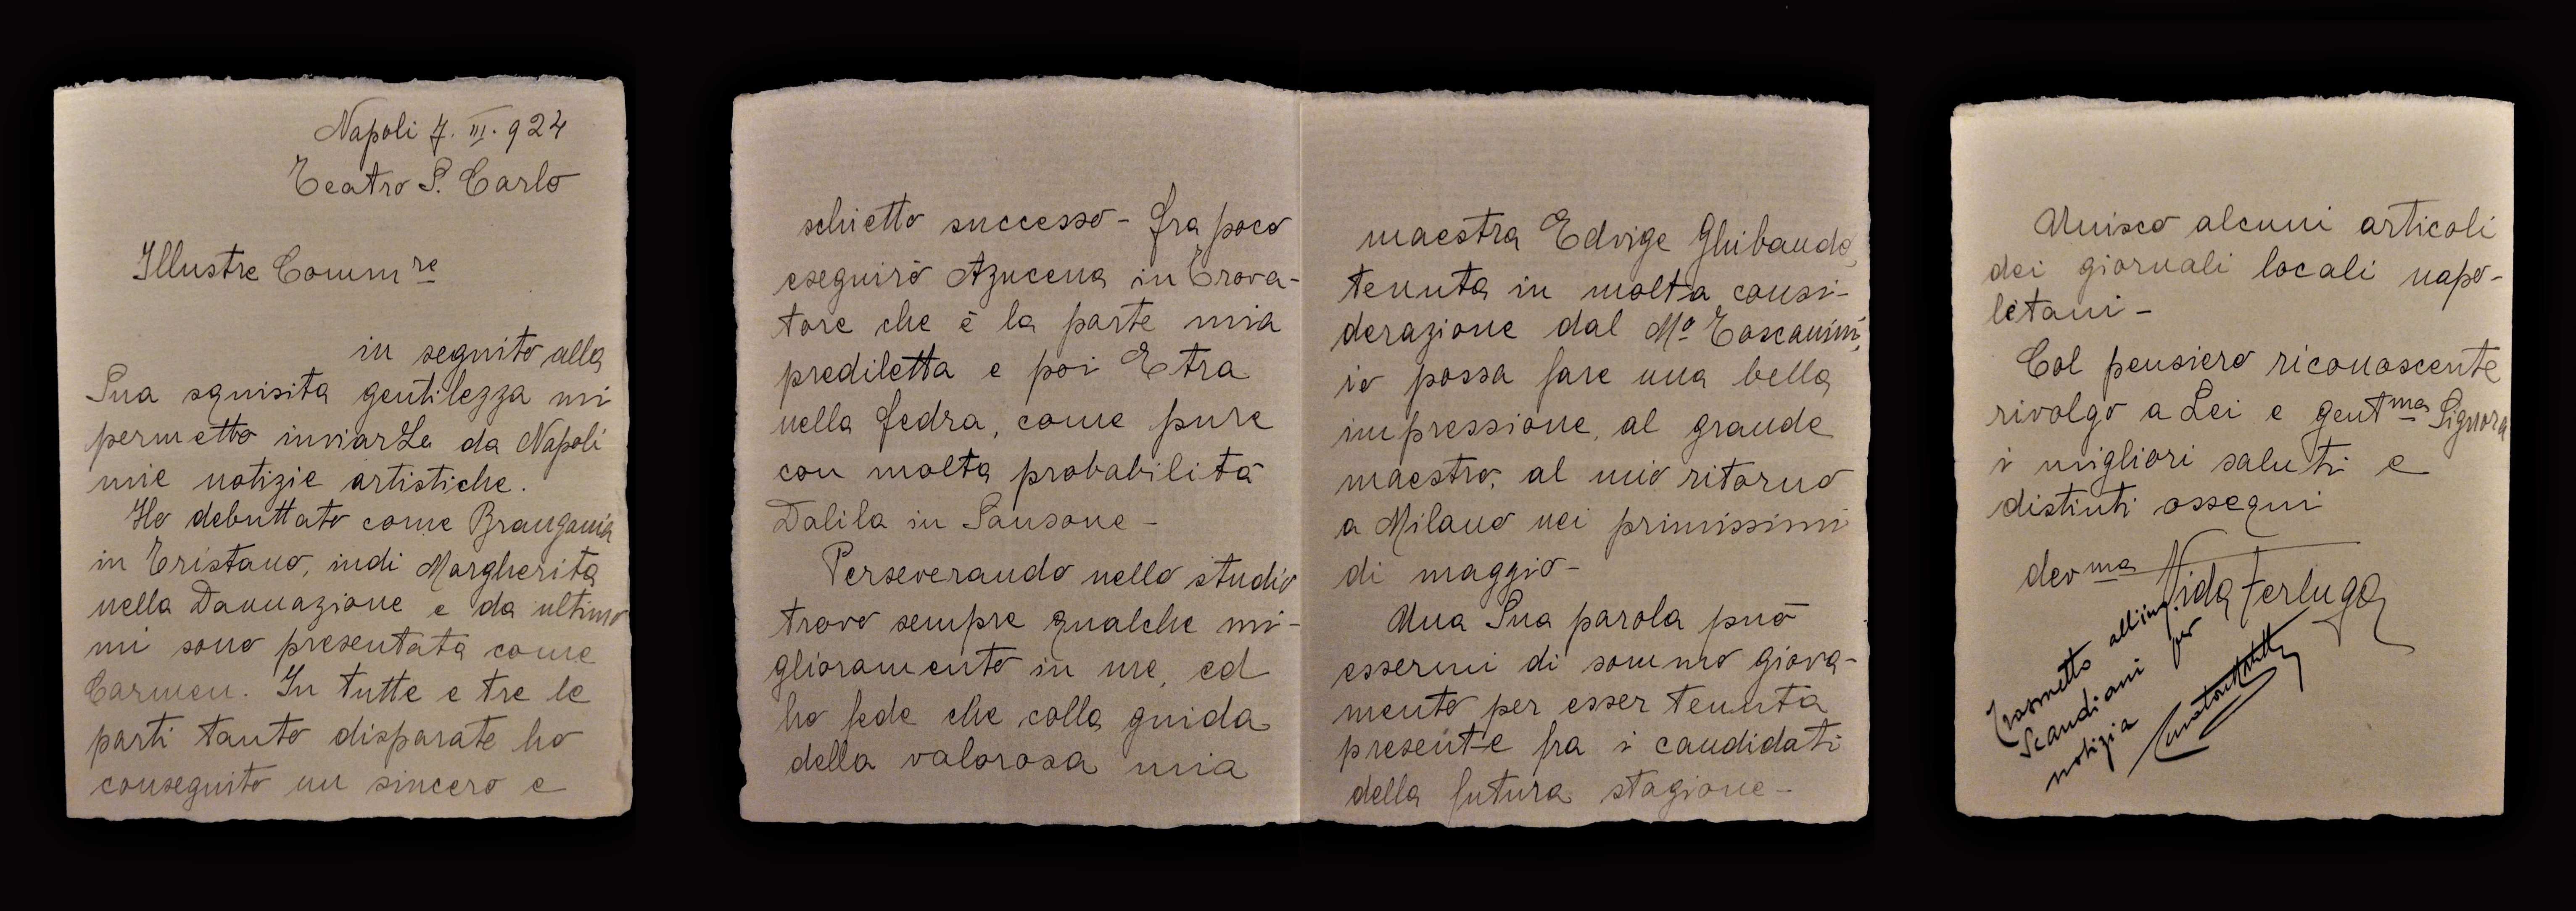 Napoli 7. III. 924
Teatro S. Carlo
Illustre Comm.re
in seguito alla
Sua squisita gentilezza mi
permetto inviarLe da Napoli
mie notizie artistiche.
Ho debuttato come Brangania
in Tristano, indi Margherita
nella Dannazione e da ultimo
mi sono presentata come
Carmen. In tutte e tre le
parti tanto disparate ho
conseguito un sincero e
schietto successo - fra poco
eseguirò Azucena in Trova-
tore che è la parte mia
prediletta e poi Etra
nella fedra, come pure
con molta probabilità
Dalila in Sansone -
Perseverando nello studio
trovo sempre qualche mi-
glioramento in me, ed
ho fede che colla guida
della valorosa mia
maestra Edvige Ghibaudo,
tenuta in molta consi-
derazione dal Mo Toscanini,
io possa fare una bella
impressione, al grande
maestro, al mio ritorno
a Milano nei primissimi
di maggio -
Una Sua parola può
essermi di sommo giova-
mento per esser tenuta
presente fra i candidati
della futura stagione -
Unisco alcuni articoli
dei giornali locali napo-
letani -
Col pensiero riconoscente
rivolgo a Lei e gentma Signora
i migliori saluti e
distinti ossequi
devma Nida Ferluga
Trasmetto all'ing.
Scandiani per
notizia